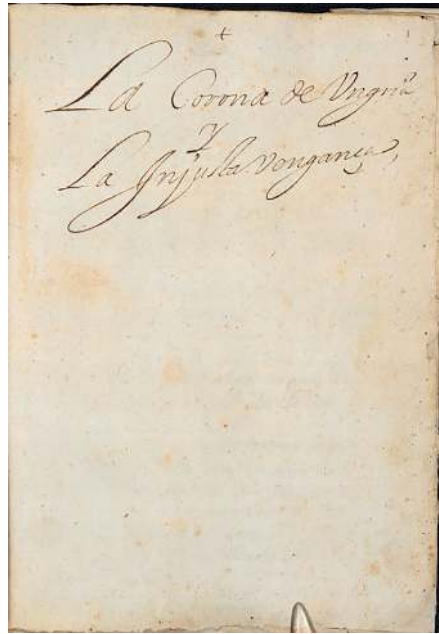 La Corona de Vngriª
Y
La Injusta Vengança,